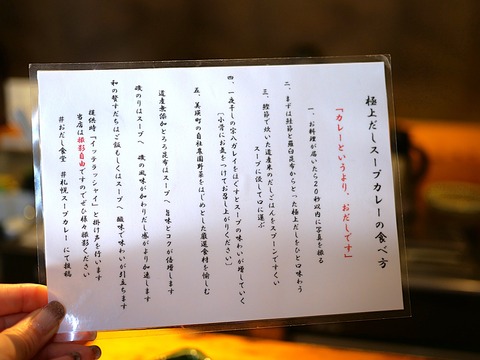 極上だしスープカレーの食べ方
「カレーというより、おだしです」
一、お料理が届いたら20秒以内に写真を撮る
二、まずは鮭節と羅臼昆布からとった極上だしをひと口味わう
三、鰹節で炊いた道産米のだしごはんをスプーンですくい
スープに浸して口に運ぶ
四、一夜干しの宗八ガレイをほぐすとスープの味わいが増していく
(小骨にお気をつけてお召し上がりください)
五、美瑛町の自社農園野菜をはじめとした厳選食材を愉しむ
道産無添加とろろ昆布はスープへ 旨味とコクが倍増します
磯のりはスープへ 磯の風味が加わりだし感がより加速します
和の酸すだちはご飯もしくはスープへ 酸味で味わいが引立ちます
提供時「イッテラッシャイ」と掛け声を行います
当店は撮影自由ですのでぜひ様々撮影ください
#おだし食堂 #札幌スープカレー にて投稿